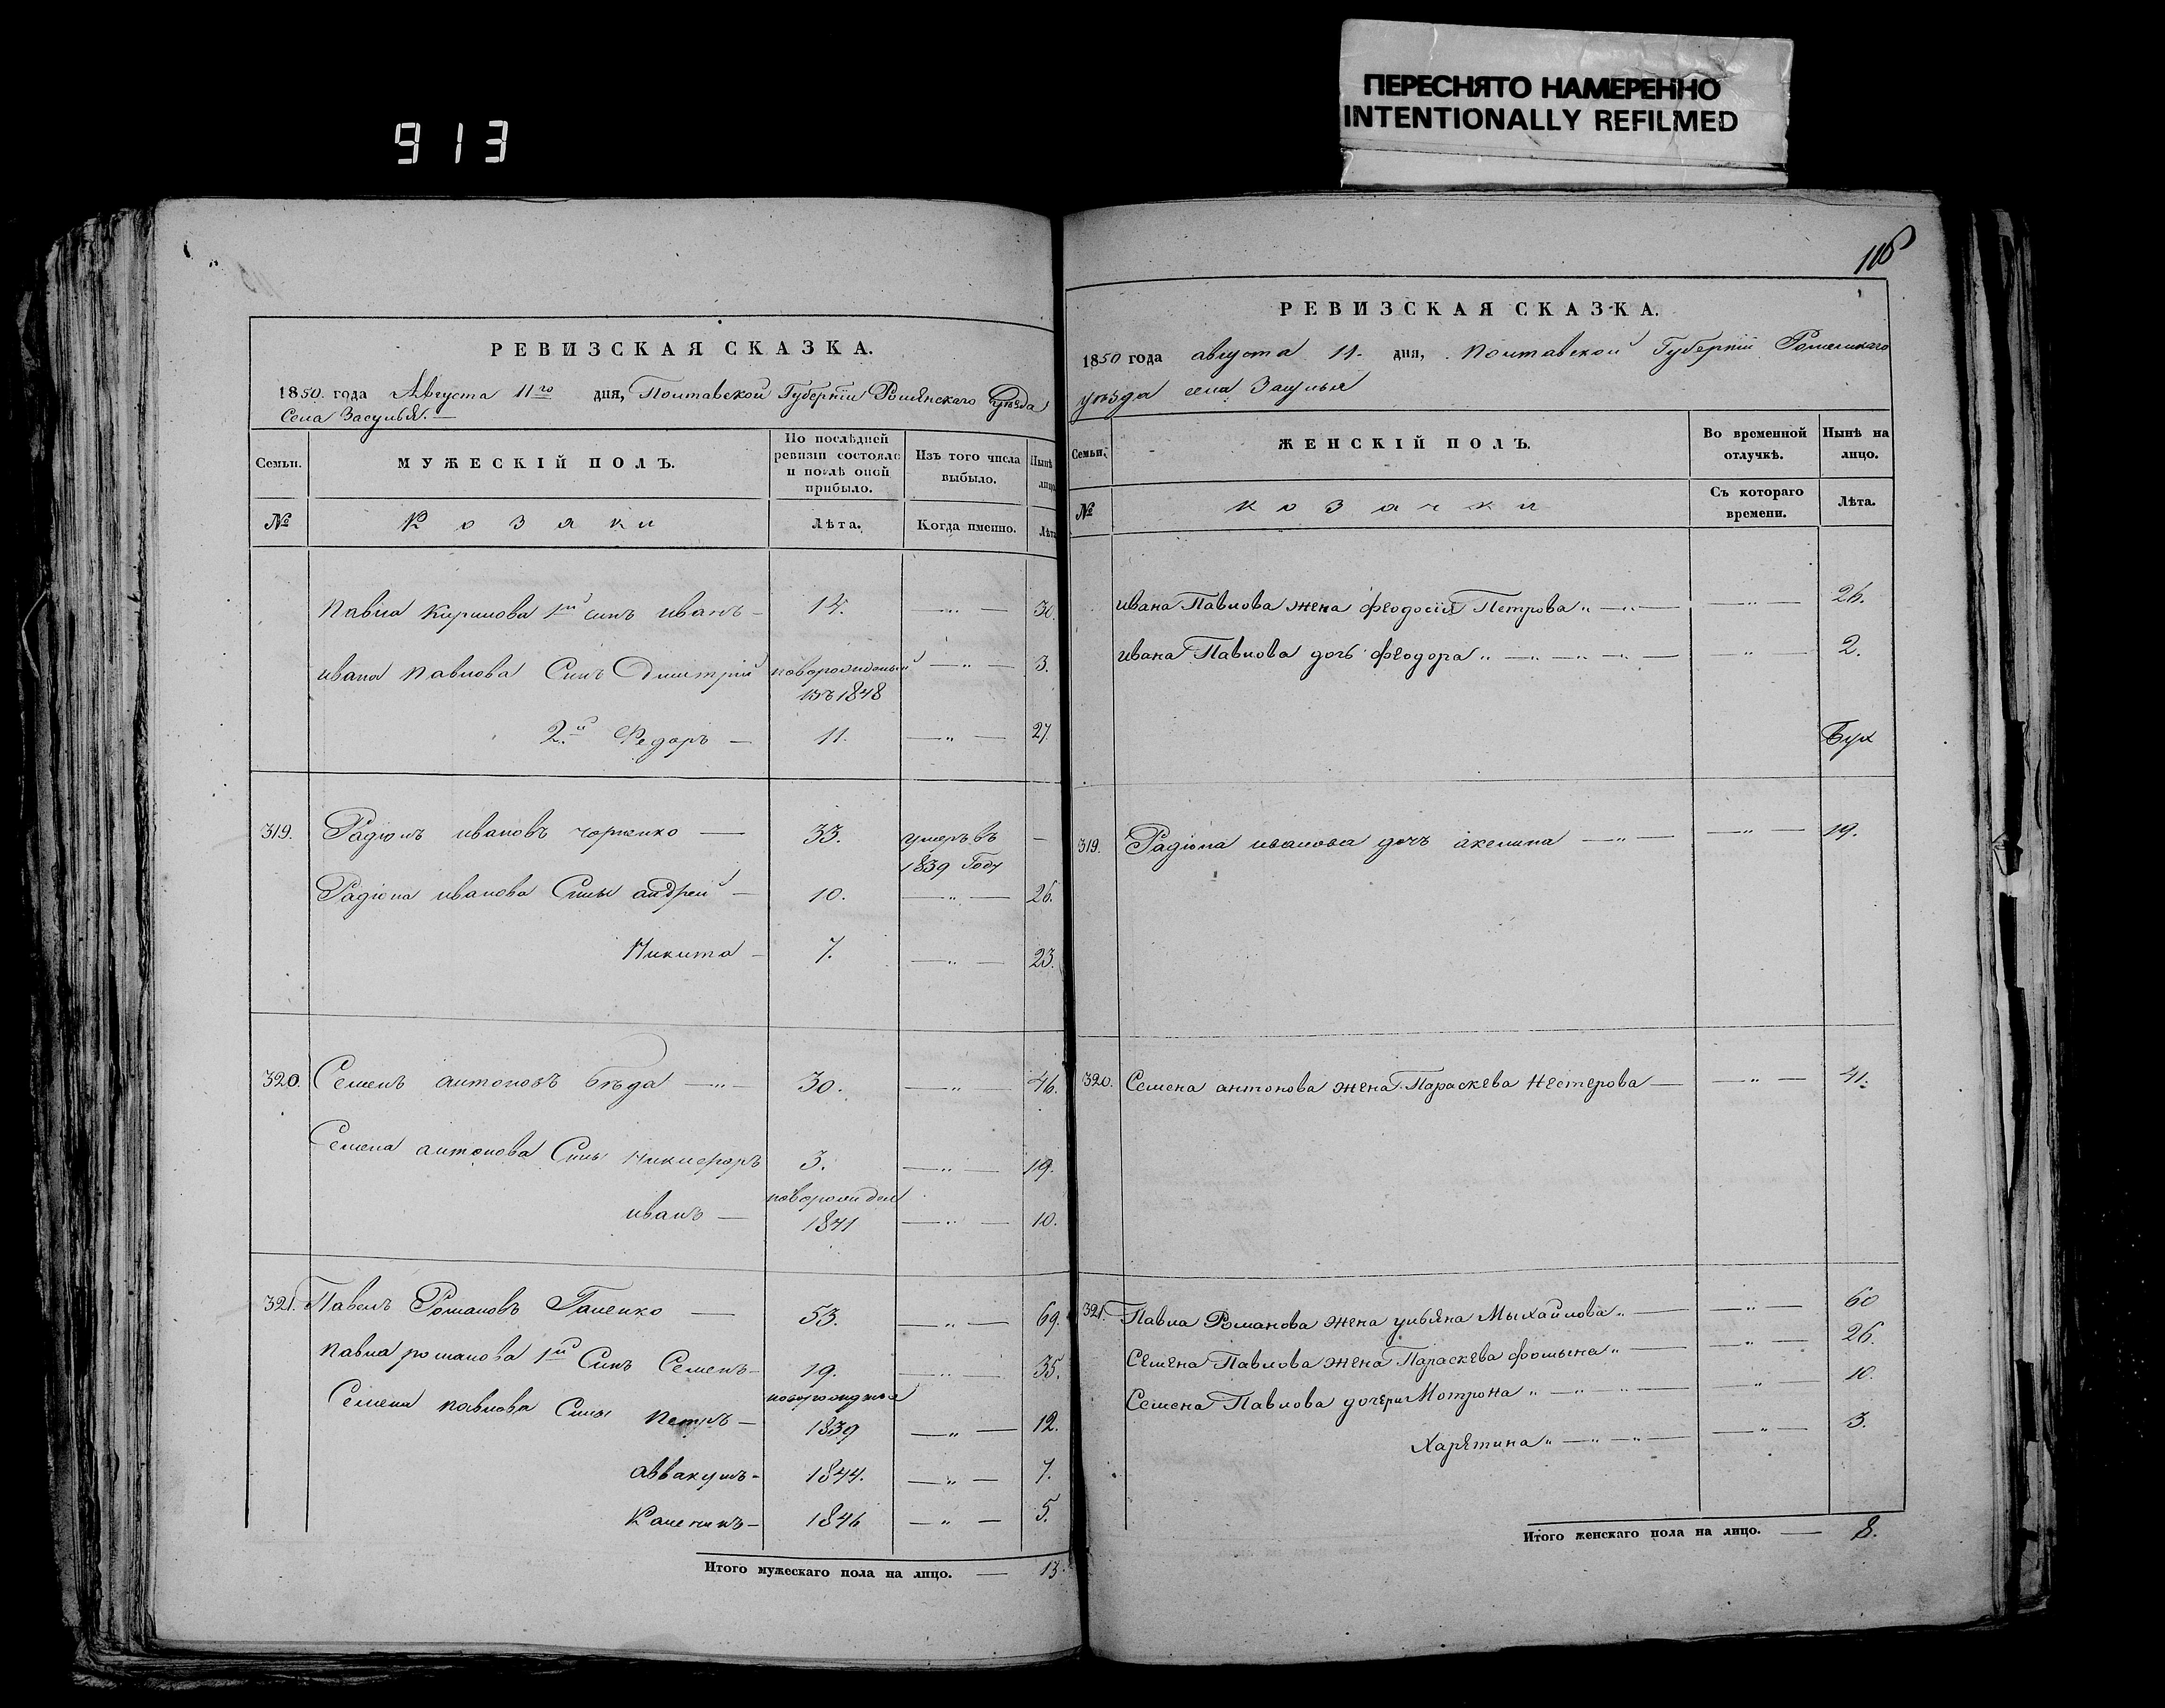 ПЕРЕСНЯТО НАМЕРЕННО
INTENTIONALLY REFILMED
913
РЕВИЗСКАЯ СКАЗКА.
1850. года Августа 11го дня, Полтавской Губернiи Роменскаго уѣзда
Села Засулья. —
Семьи. МУЖЕСКІЙ ПОЛЪ. По послѣдней ревизіи состояло и послѣ оной прибыло. Изъ того числа выбыло. Нынѣ лицо
№ Козаки Лѣта. Когда именно. Лѣта
Павла Кирилова 1й синъ иванъ — 14. — " — 30.
ивана Павлова Синъ Димитрій новорожденый — " — 3.
въ 1848
2й Федоръ — 11. — " — 27.
319. Радіонъ ивановъ чорненко — 33. умеръ въ —
1839 Году
Радіона иванова Сины андрей — 10. — " — 26.
Никита — 7. — " — 23.
320. Семенъ антоновъ бѣда — " — 30. — " — 46.
Семена антонова Сины никифоръ 3. — " — 19.
новорожден
иванъ — 1841 — " — 10.
321. Павелъ Романовъ Галенко — 53. — " — 69.
Павла романова 1й Синъ Семенъ — 19. — " — 35.
новорожденыя
Семена павлова Сины Петръ — 1839 — " — 12.
аввакумъ — 1844. — " — 7.
Каленикъ — 1846 — " — 5.
Итого мужескаго пола на лицо. — 13.
118
РЕВИЗСКАЯ СКАЗКА.
1850 года августа 11. дня, Полтавской Губерніи Роменскаго
уѣзда села Засулья
Семьи. ЖЕНСКІЙ ПОЛЪ. Во временной отлучкѣ. Нынѣ на лицо.
№ козачки Съ котораго времени. Лѣта.
ивана Павлова жена феодосія Петрова " — " — — " — 26.
ивана Павлова дочь феодора " — " — " — " — — " — 2.
319. Радіона иванова дочъ акелина — " — — " — 19.
320. Семена антонова жена Параскева Нестерова — — " — 41.
321. Павла Романова жена ульяна Мыхайлова " — — " — 60
Семена Павлова жена Параскева фомына " — — " — 26.
Семена Павлова дочери Мотрона " — " — " — " — 10.
Харѣтина " — " — " — — " — 3.
Итого женскаго пола на лицо. — 8.